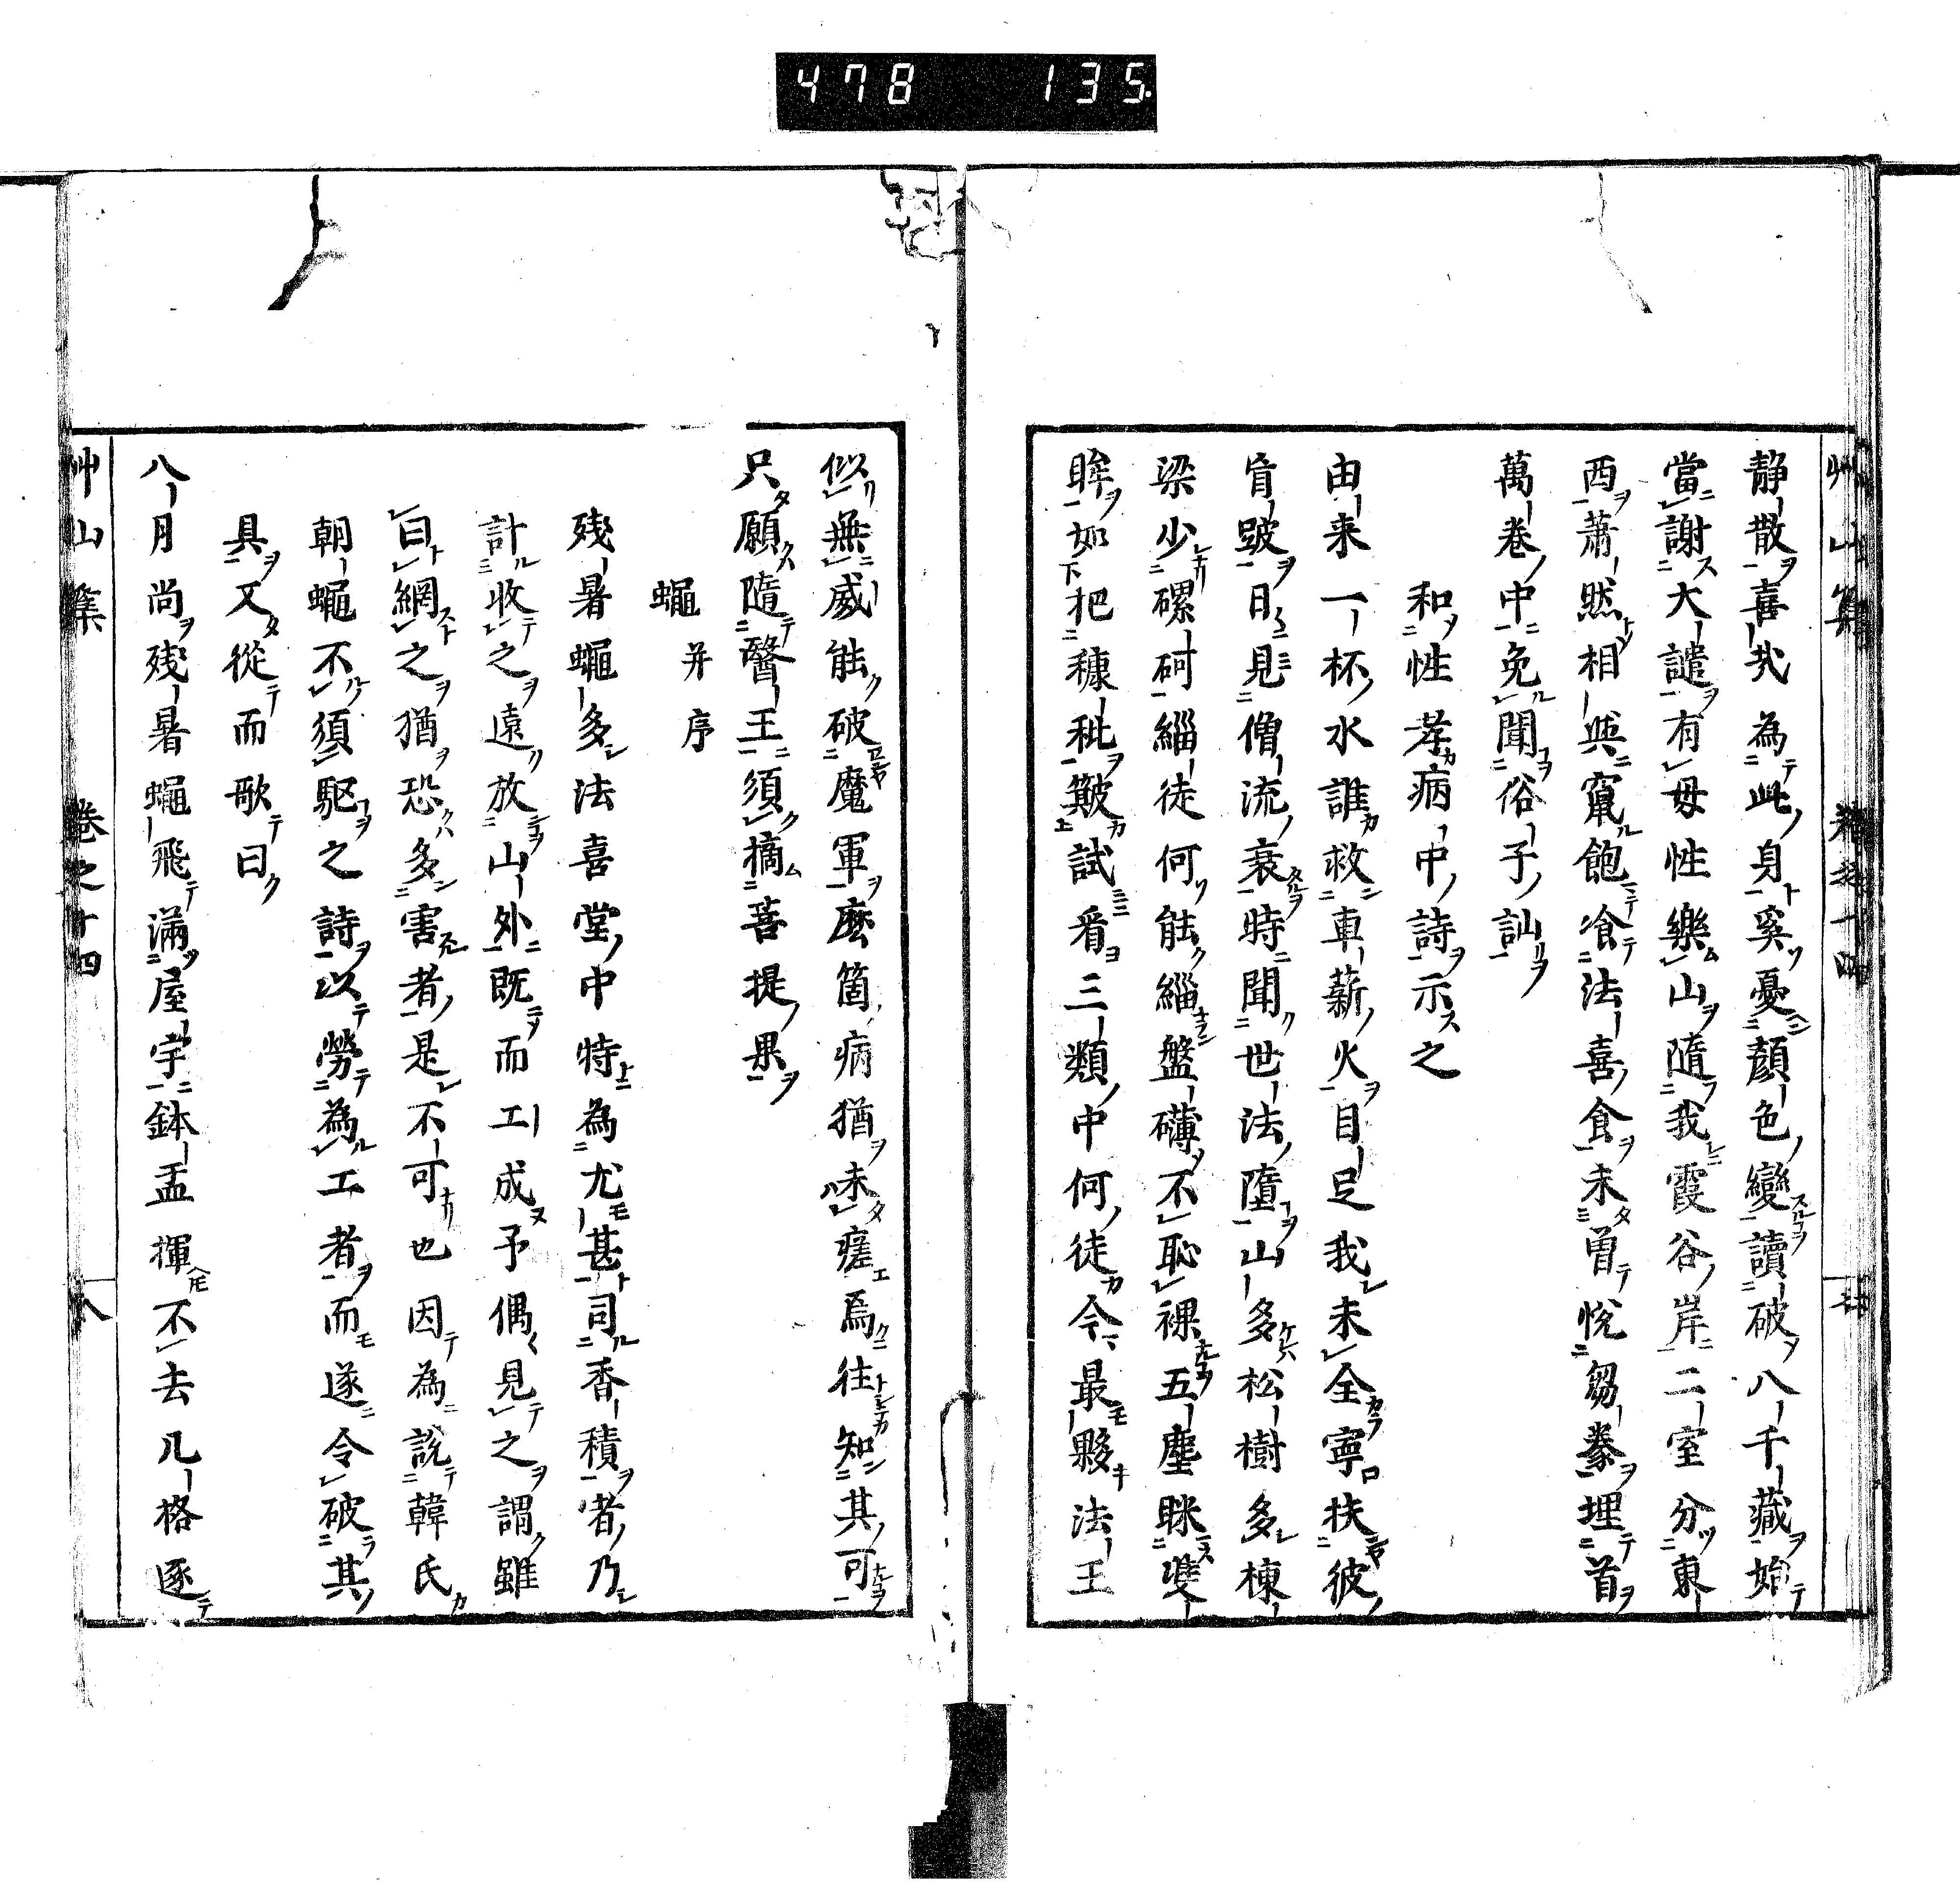 478 135
艸山集 卷之十四
静散喜哉為此身奚憂顔色變讀破八千藏始
當謝大譴有毋性樂山隨我霞谷岸二室分東
西蕭然相與竄飽飡法喜食未曾悅芻豢埋首
萬卷中免聞俗子訕
和性孝病中詩示之
由来一杯水誰救車薪火目足我未全寧扶彼
盲跛日見僧流衰時聞世法墮山多松樹多棟
梁少磥砢緇徒何能緇盤礴不恥裸五塵眯雙
眸如把穅秕簸試看三類中何徒今最夥法王
似無威能破魔軍麽箇病猶未瘥焉往知其可
只願隨醫王須摘菩提果
蠅并序
殘暑蠅多法喜堂中特為尤甚司香積者乃
計收之遠放山外既而工成予偶見之謂雖
曰網之猶恐多害者是不可也因為說韓氏
朝蠅不須驅之詩以勞為工者而遂令破其
具又從而歌曰
八月尚殘暑蠅飛滿屋宇鉢盂揮不去几格逐
艸山集 卷之十四 八